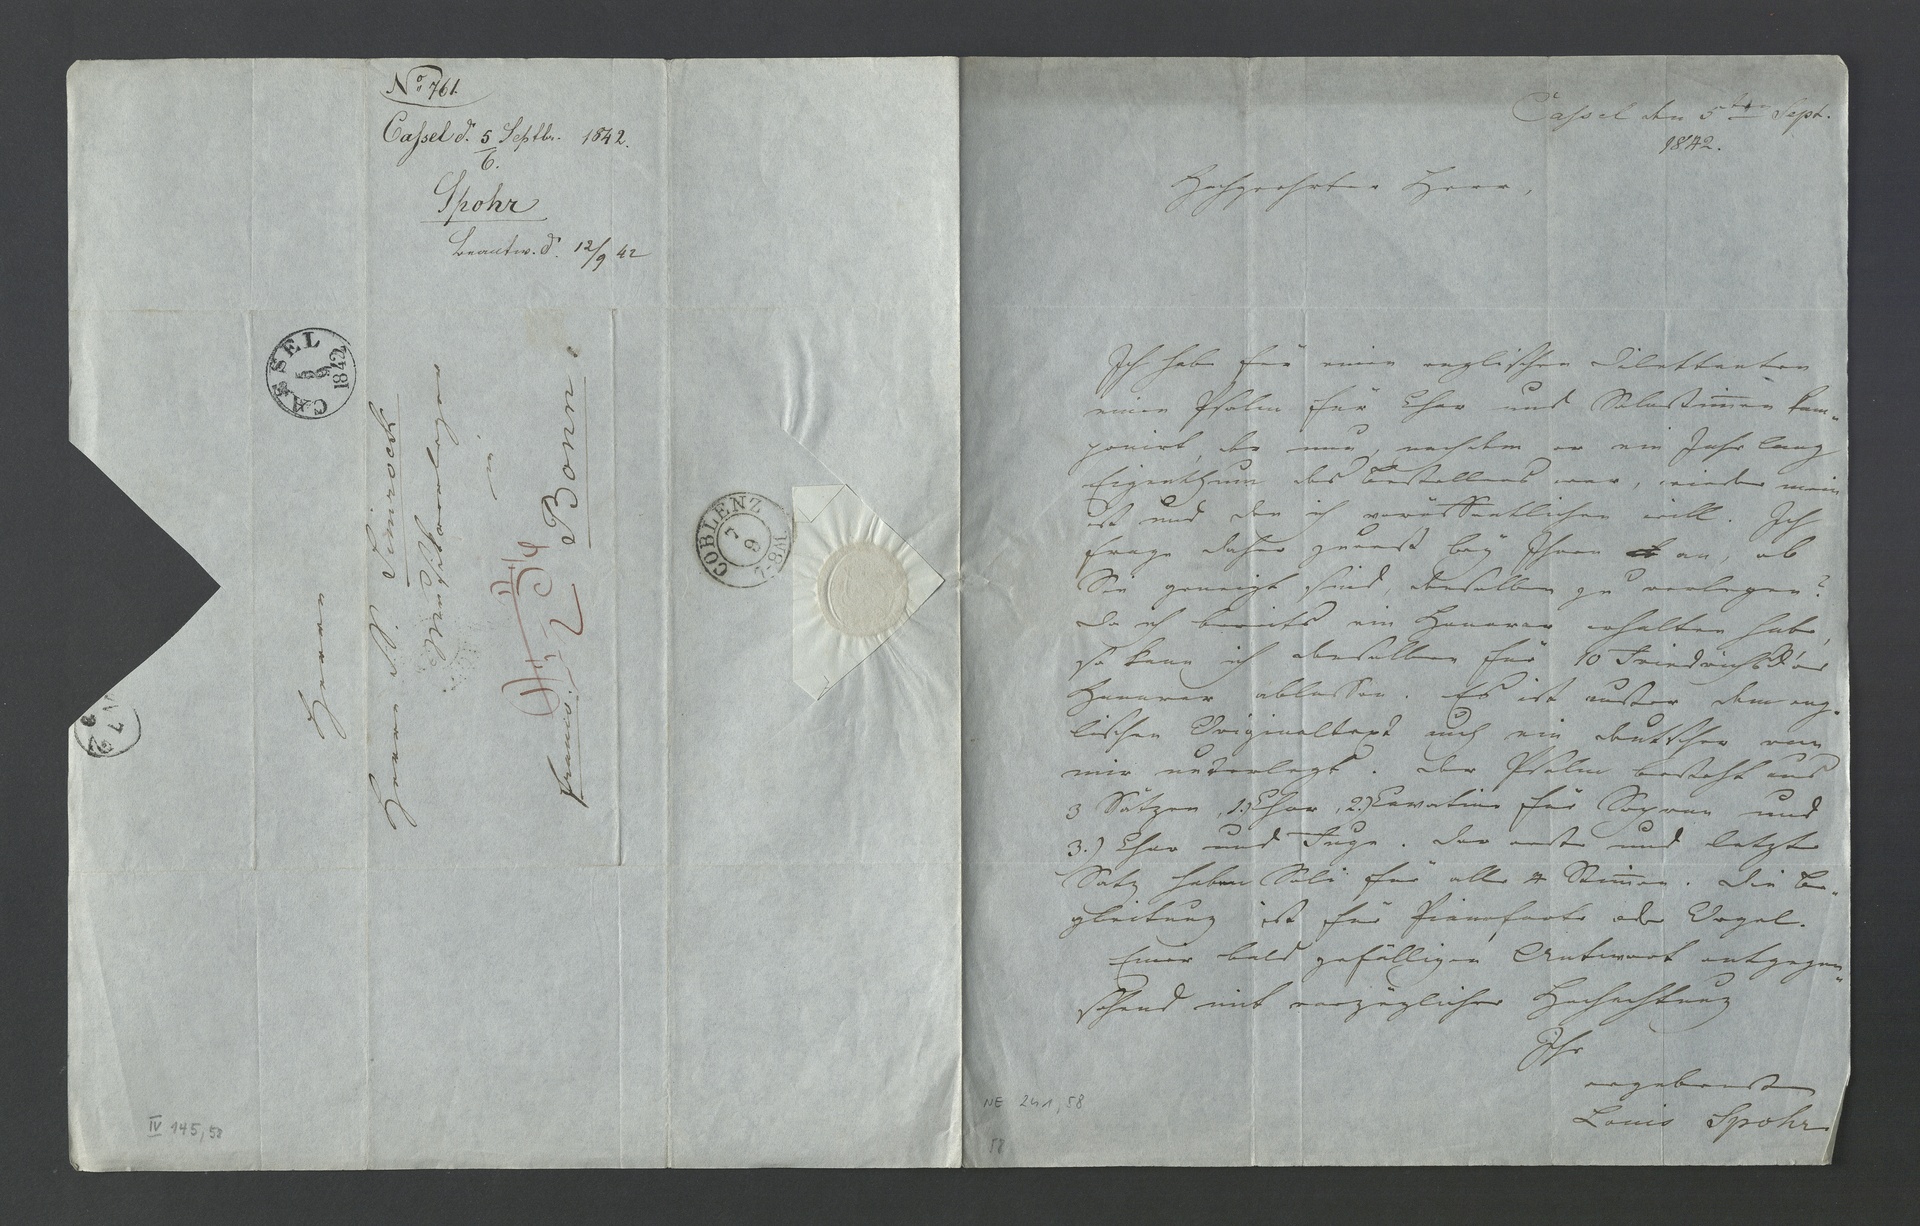 No 761.
Cassel d. 5 Septbr. 1842.
6.
Spohr
Beantw. d. 12/9 42
CASSEL
5 9
1842
Herrn
Herrn N. Simrock
Musikverleger
in
Bonn.
franco.
COBLENZ
7
9
IV 145,58
Cassel den 5ten Sept.
1842.
Hochgeehrter Herr,
Ich habe für einen englischen Dilettanten
einen Psalm für Chor und Solostimmen kom-
ponirt, der nun, nachdem er ein Jahr lang
Eigenthum des Bestellers war, wieder mein
ist und den ich veröffentlichen will. Ich
frage daher zuerst bey Ihnen an, ob
Sie geneigt sind, denselben zu verlegen?
Da ich bereits ein Honorar erhalten habe,
so kann ich denselben für 10 Friedrichsd'or
Honorar ablassen. Es ist außer dem eng-
lischen Originaltext auch ein deutscher von
mir unterlegt. Der Psalm besteht aus
3 Sätzen, 1.) Chor, 2.) Cavatine für Sopran und
3.) Chor und Fuge. Der erste und letzte
Satz haben Soli für alle 4 Stimmen. Die Be-
gleitung ist für Pianoforte oder Orgel.
Einer bald gefälligen Antwort entgegen-
sehend mit vorzüglicher Hochachtung
Ihr
ergebenster
Louis Spohr.
NE 241,58
58